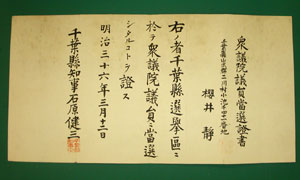 衆議院議員當選證書
櫻井静
右ノ者千葉縣選擧區ニ
於テ衆議院議員ニ當選
シタルコトヲ證ス
明治三十六年三月十二日
千葉縣知事石原健三